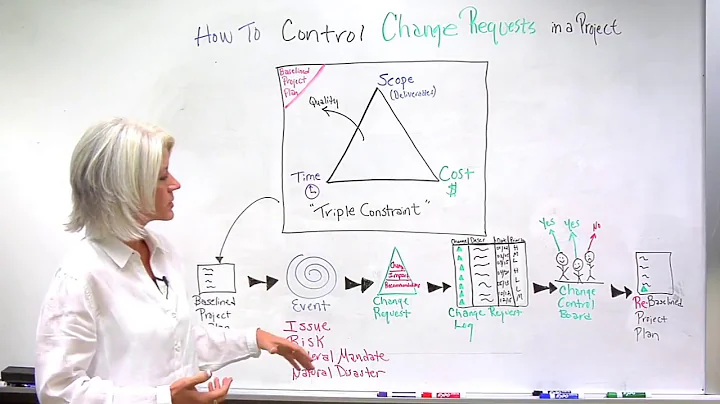 How To Control Change Requests in a Project
Baselined
Project
Plan
Scope
(Deliverables)
Quality
Time
Cost
$
"Triple Constraint"
Baselined
Project
Plan
Event
Issue
Risk
Mandate
Natural Disaster
Impact
Recommendation
Change
Request
Change Descr Date Priority
H
M
H
L
L
M
Change Request
Log
Yes Yes No
Change
Control
Board
Re-Baselined
Project
Plan